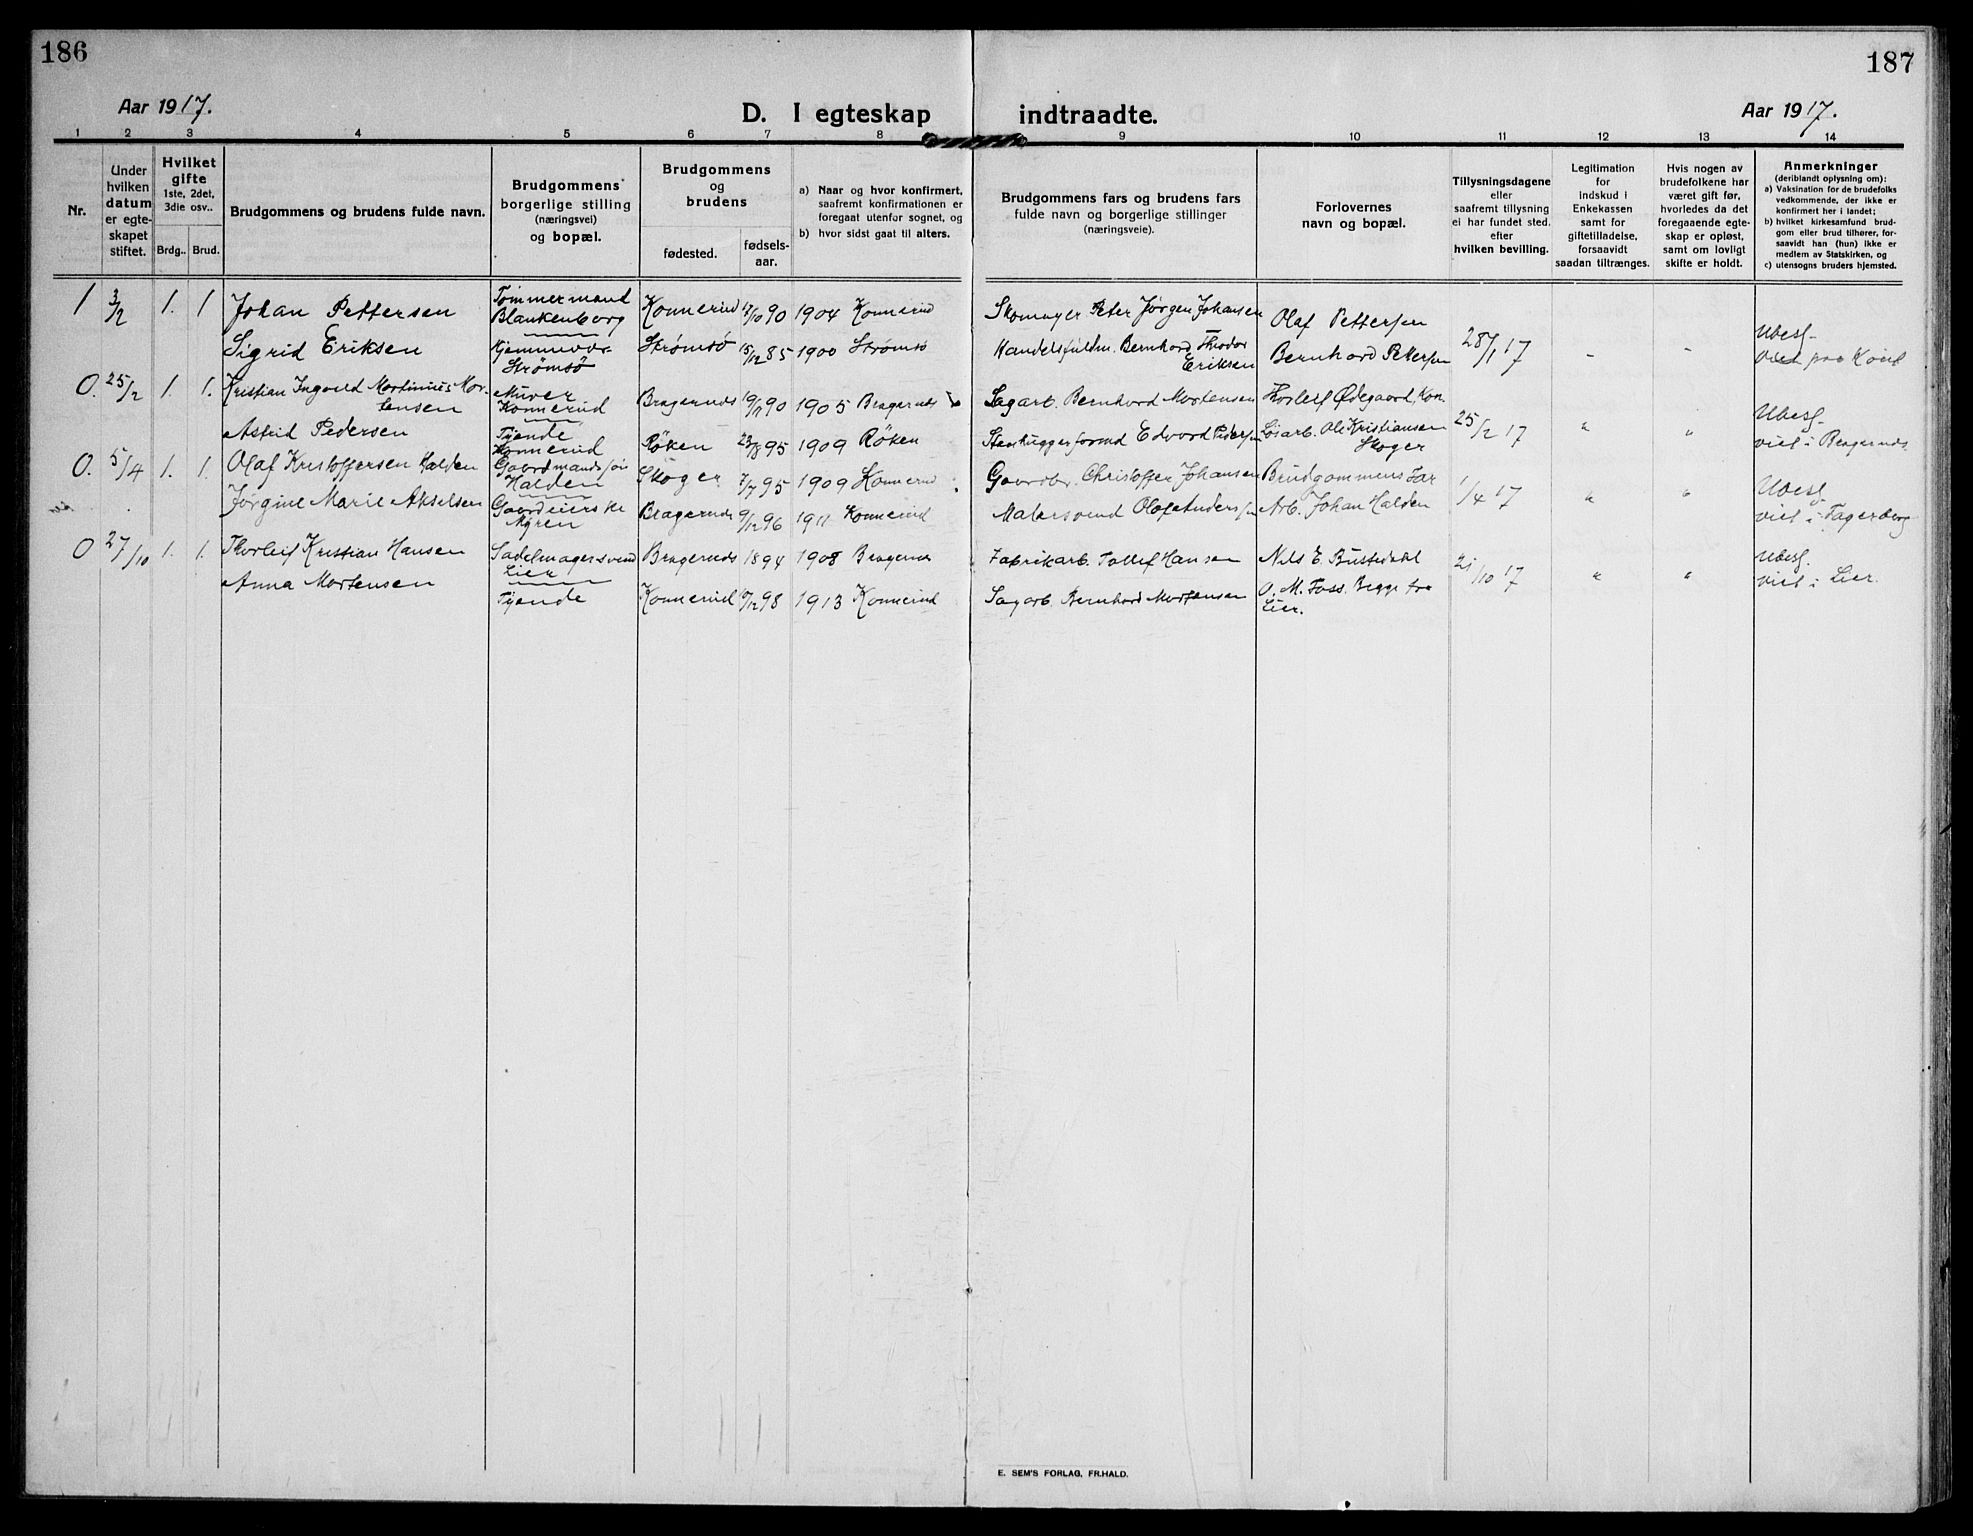 186
187
Aar 1917.
D. I egteskap indtraadte.
Aar 1917.
1 2 3 4 5 6 7 8 9 10 11 12 13 14
Nr.
Under hvilken datum er egte-skapet stiftet.
Hvilket gifte 1ste, 2det, 3die osv..
Brdg.. Brud.
Brudgommens og brudens fulde navn.
Brudgommens borgerlige stilling (næringsvei) og bopæl.
Brudgommens og brudens
fødested.
fødsels-aar.
a) Naar og hvor konfirmert, saafremt konfirmationen er foregaat utenfor sognet, og
b) hvor sidst gaat til alters.
Brudgommens fars og brudens fars fulde navn og borgerlige stillinger (næringsveie).
Forlovernes navn og bopæl.
Tillysningsdagene eller saafremt tillysning ei har fundet sted. efter hvilken bevilling.
Legitimation for indskud i Enkekassen samt for giftetilladelse, forsaavidt saadan tiltrænges.
Hvis nogen av brudefolkene har været gift før, hvorledes da det foregaaende egte-skap er opløst, samt om lovligt skifte er holdt.
Anmerkninger (deriblandt oplysning om):
a) Vaksination for de brudefolks vedkommende, der ikke er konfirmert her i landet;
b) hvilket kirkesamfund brud-gom eller brud tilhører, for-saavidt han (hun) ikke er medlem av Statskirken, og
c) utensogns bruders hjemsted.
1 3/2 1. 1 Johan Pettersen Tømmermand Blankenborg Konnerud 17/10 90 1904 Konnerud Skomager Peter Jørgen Johansen Olaf Pettersen 28/1 17 - - Ubesl.
Sigrid Eriksen Strømsø Strømsø 15/12 85 1900 Strømsø Handelsfuldm. Bernhard Theodor Eriksen Bernhard Pettersen viet paa
0. 25/2 1. 1. Kristian Ingvald Martinius Mor-tensen Murer Konnerud Bragernes 19/12 90 1905 Bragernes Sagarb. Bernhard Mortensen Thorleif Ødegaard, Kon. 25/2 17 " " Ubesl.
Astrid Pedersen Tjende Konnerud Røken 23/8 95 1909 Røken Stenhuggerformd Edvard Pedersen Løsarb. Ole Kristiansen Skoger viet i Bragernes
0. 5/4 1. 1. Olaf Kristoffersen Halden Gaardmandssøn Halden Skoger 7/7 95 1909 Konnerud Gaardbr. Christoffer Johansen Brudgommens Far 1/4 17 " " Ubesl.
Jørgine Marie Akselsen Myren Bragernes 9/12 96 1911 Konnerud Malersvend Olaf Andersen Arb. Johan Halden viet i Fagerberg
0 27/10 1. 1. Thorleif Kristian Hansen Sadelmagersvend Lier Bragernes 1894 1908 Bragernes Fabrikarb. Tollef Hansen Nils E. Bustedahl 21/10 17 " " Ubesl.
Anna Mortensen Tjende Konnerud 98 1913 Konnerud Sagarb. Bernhard Mortensen O. M. Foss. Begge fra Lier. viet i Lier.
E. SEM'S FORLAG, FR.HALD.